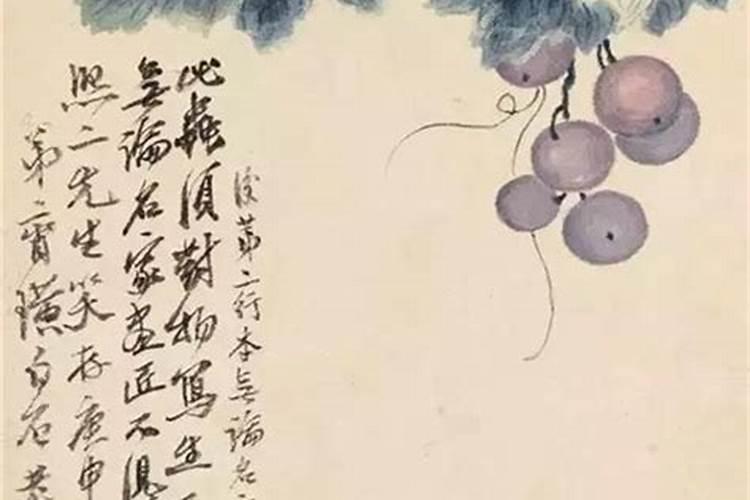 後第二行本無論名
此蟲須對物寫生
無論名家畫匠不
照二先生笑存庚申
第二背璜白石